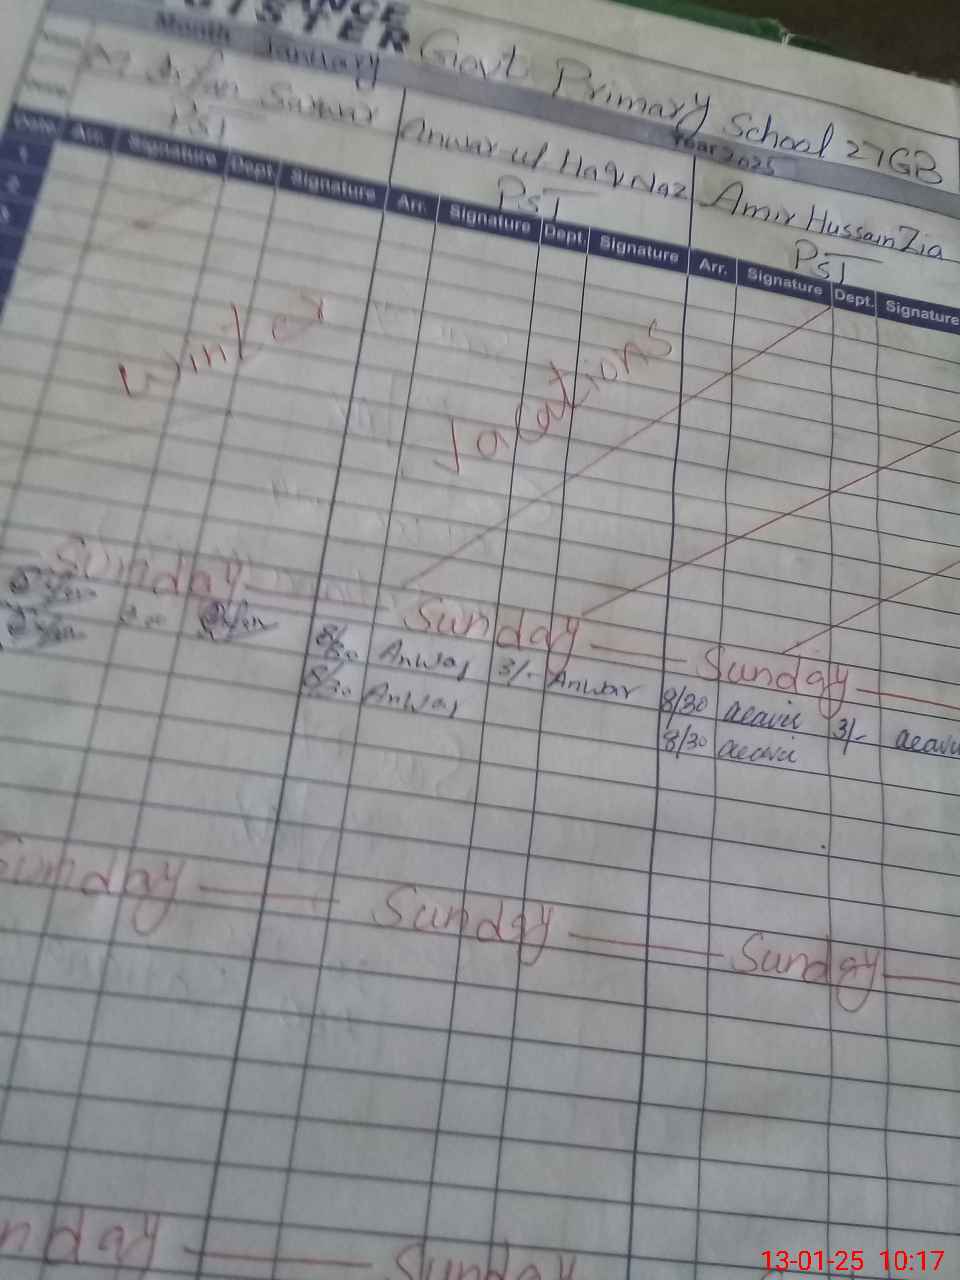 REGISTER Govt Primary School 27GB
Month January Year 2025
Anwar ul Haq Naz Amir Hussain Zia
PST PST PST
Date Arr. Signature Dept. Signature Arr. Signature Dept. Signature Arr. Signature Dept. Signature
1
2
3
Winter Vacations
Sunday Sunday Sunday
8/30 Anwar 3/- Anwar 8/30 3/-
8/30 Anwar 8/30
Sunday Sunday Sunday
nday Sunday
13-01-25 10:17